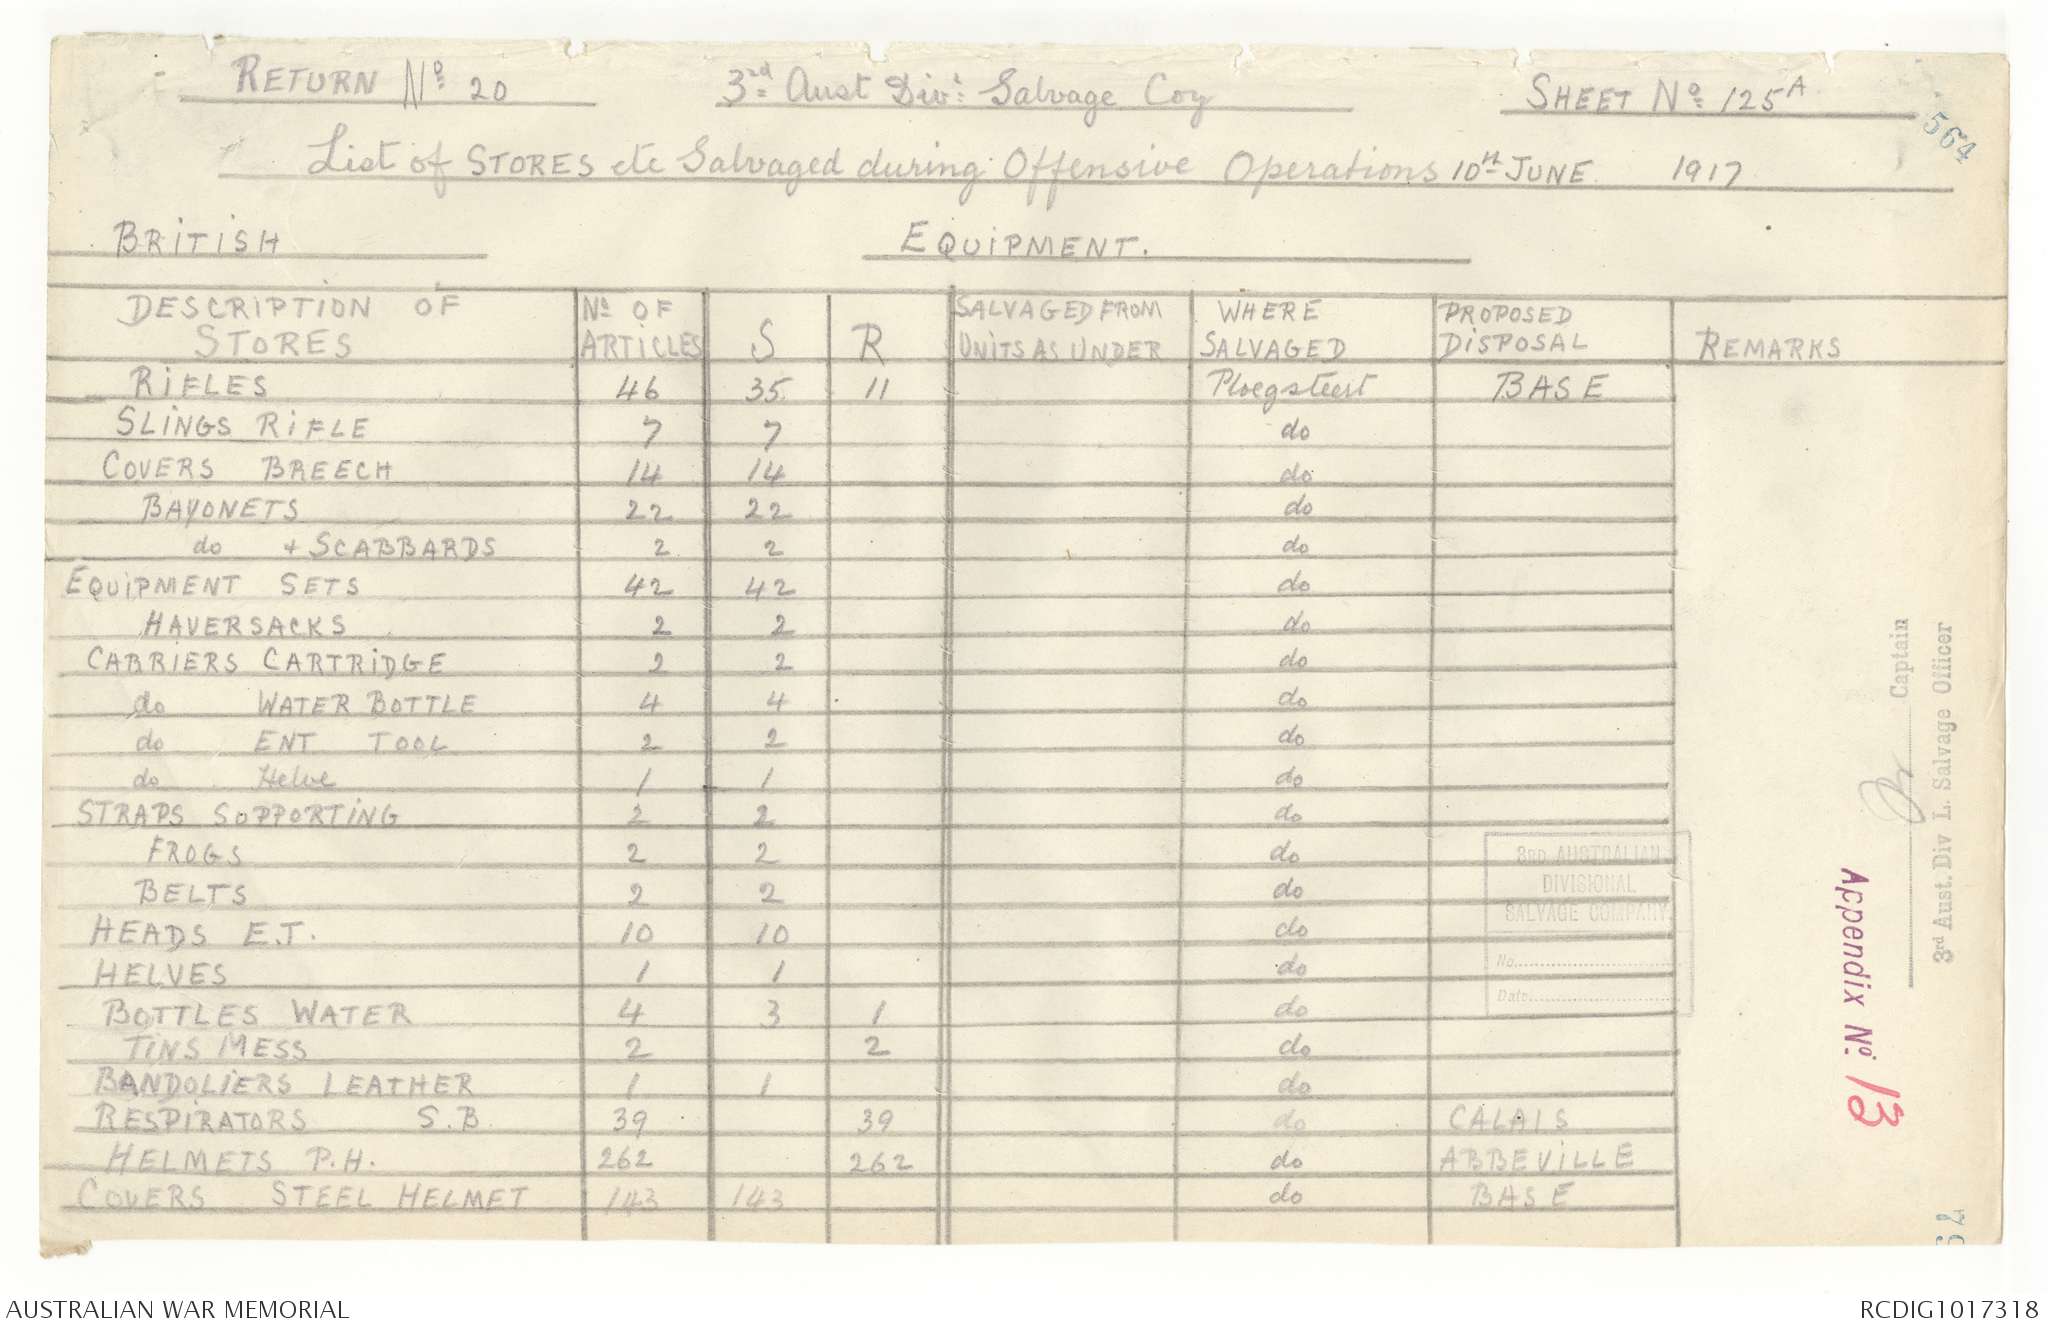 RETURN No. 20 3rd Aust Div: Salvage Coy SHEET No. 125A
564
List of STORES etc Salvaged during Offensive Operations 10TH JUNE 1917
BRITISH EQUIPMENT.
DESCRIPTION OF STORES No. OF ARTICLES S R SALVAGED FROM UNITS AS UNDER WHERE SALVAGED PROPOSED DISPOSAL REMARKS
RIFLES 46 35 11 Ploegsteert BASE
SLINGS RIFLE 7 7 do
COVERS BREECH 14 14 do
BAYONETS 22 22 do
do + SCABBARDS 2 2 do
EQUIPMENT SETS 42 42 do
HAVERSACKS 2 2 do
CARRIERS CARTRIDGE 2 2 do
do WATER BOTTLE 4 4 do
do ENT TOOL 2 2 do
do Helve 1 1 do
STRAPS SUPPORTING 2 2 do
FROGS 2 2 do
BELTS 2 2 do
HEADS E.T. 10 10 do
HELVES 1 1 do
BOTTLES WATER 4 3 1 do
TINS MESS 2 2 do
BANDOLIERS LEATHER 1 1 do
RESPIRATORS S.B 39 39 do CALAIS
HELMETS P.H. 262 262 do ABBEVILLE
COVERS STEEL HELMET 143 143 do BASE
3RD AUSTRALIAN
DIVISIONAL
SALVAGE COMPANY.
No.
Date
Captain
3rd Aust. Div L. Salvage Officer
Appendix No. 13
AUSTRALIAN WAR MEMORIAL
RCDIG1017318